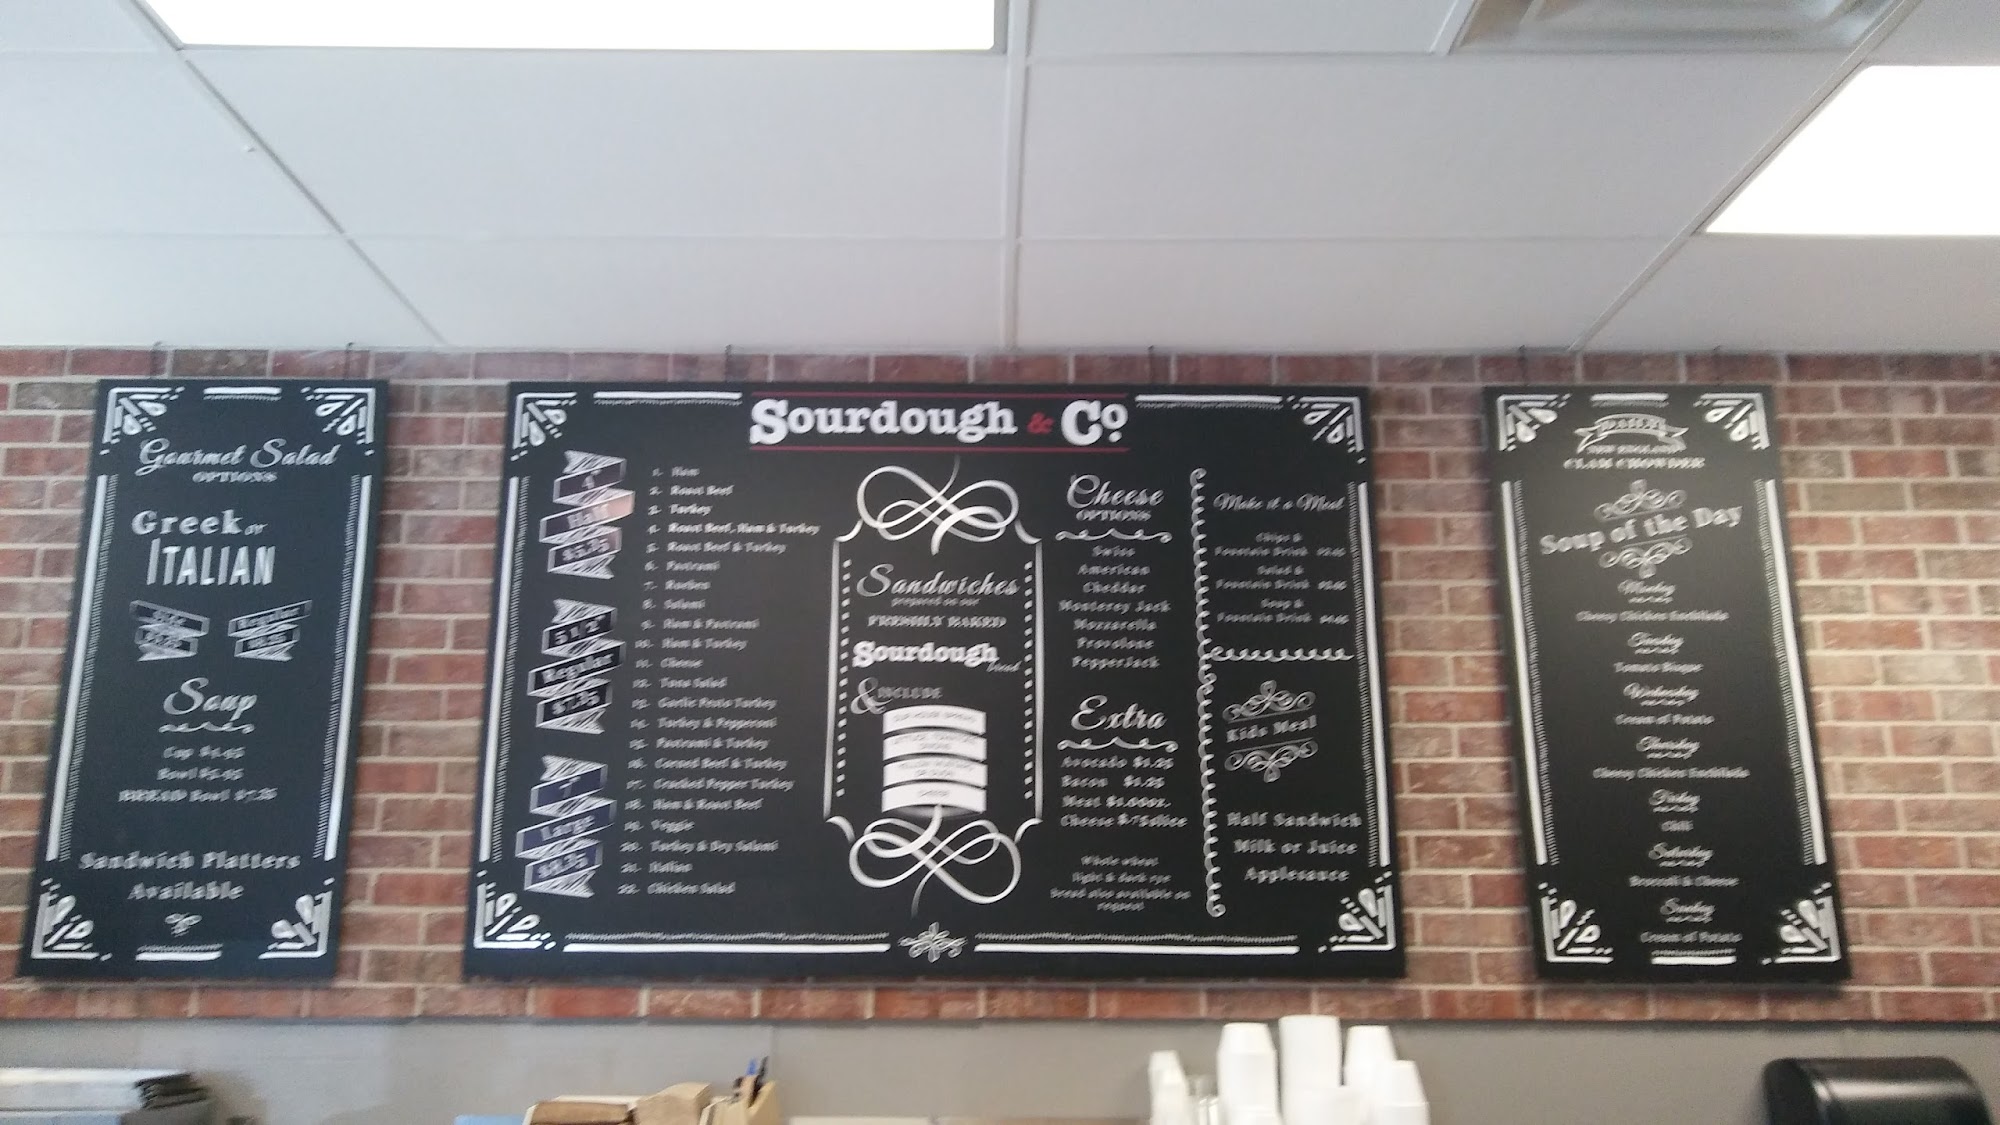 Gourmet Salad
OPTIONS
Greek or
ITALIAN
Regular
Soup
Cup
Bowl
BREAD Bowl $7.25
Sandwich Platters
Available
Sourdough & Co.
4"
Half
$5.75
5 1/2"
Regular
$7.25
7"
Large
1. Ham
2. Roast Beef
3. Turkey
4. Roast Beef, Ham & Turkey
5. Roast Beef & Turkey
6. Pastrami
7. Reuben
8. Salami
9. Ham & Pastrami
10. Ham & Turkey
11. Cheese
12. Tuna Salad
13. Garlic Pesto Turkey
14. Turkey & Pepperoni
15. Pastrami & Turkey
16. Corned Beef & Turkey
17. Cracked Pepper Turkey
18. Ham & Roast Beef
19. Veggie
20. Turkey & Dry Salami
21. Italian
22. Chicken Salad
Sandwiches
prepared on our
FRESHLY BAKED
Sourdough
bread
& INCLUDE
Cheese
OPTIONS
Swiss
American
Cheddar
Monterey Jack
Mozzarella
Provolone
PepperJack
Extra
Avocado $1.25
Bacon $1.25
Meat $1.00oz.
Cheese $.75slice
Whole wheat
light & dark rye
bread also available on
request
Make it a Meal
Chips &
Fountain Drink
Salad &
Fountain Drink
Soup &
Fountain Drink
Kids Meal
Half Sandwich
Milk or Juice
Applesauce
DAILY
NEW ENGLAND
CLAM CHOWDER
Soup of the Day
Monday
Cheesy Chicken Enchilada
Tuesday
Tomato Bisque
Wednesday
Cream of Potato
Thursday
Cheesy Chicken Enchilada
Friday
Chili
Saturday
Broccoli & Cheese
Sunday
Cream of Potato